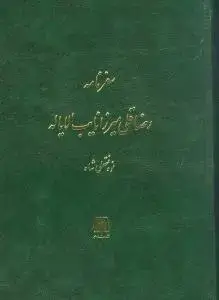 سفرنامه
رضاقلی میرزا نایب الایاله
نوه فتحعلی شاه